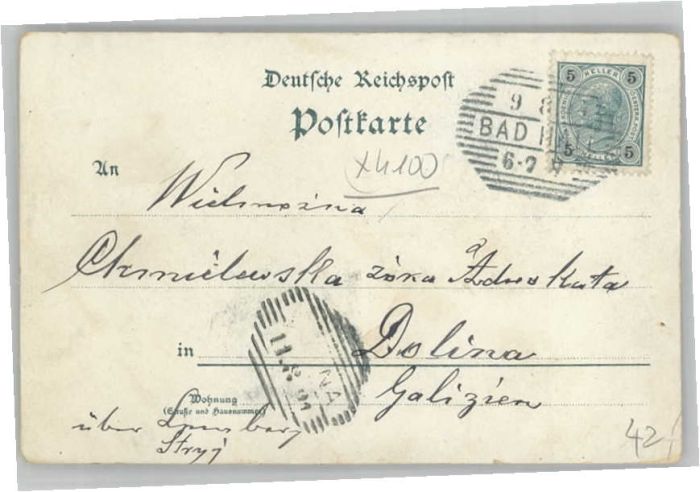 Deutsche Reichspost
Postkarte
5 HELLER 5
9 8
BAD
6-7
5 5
x4100
An
Wielmożna
Chmielewska żona Adwokata
in Dolina
11.8.01
NA
Galizien
Wohnung
(Straße und Hausnummer)
über Lemberg
Stryj
42